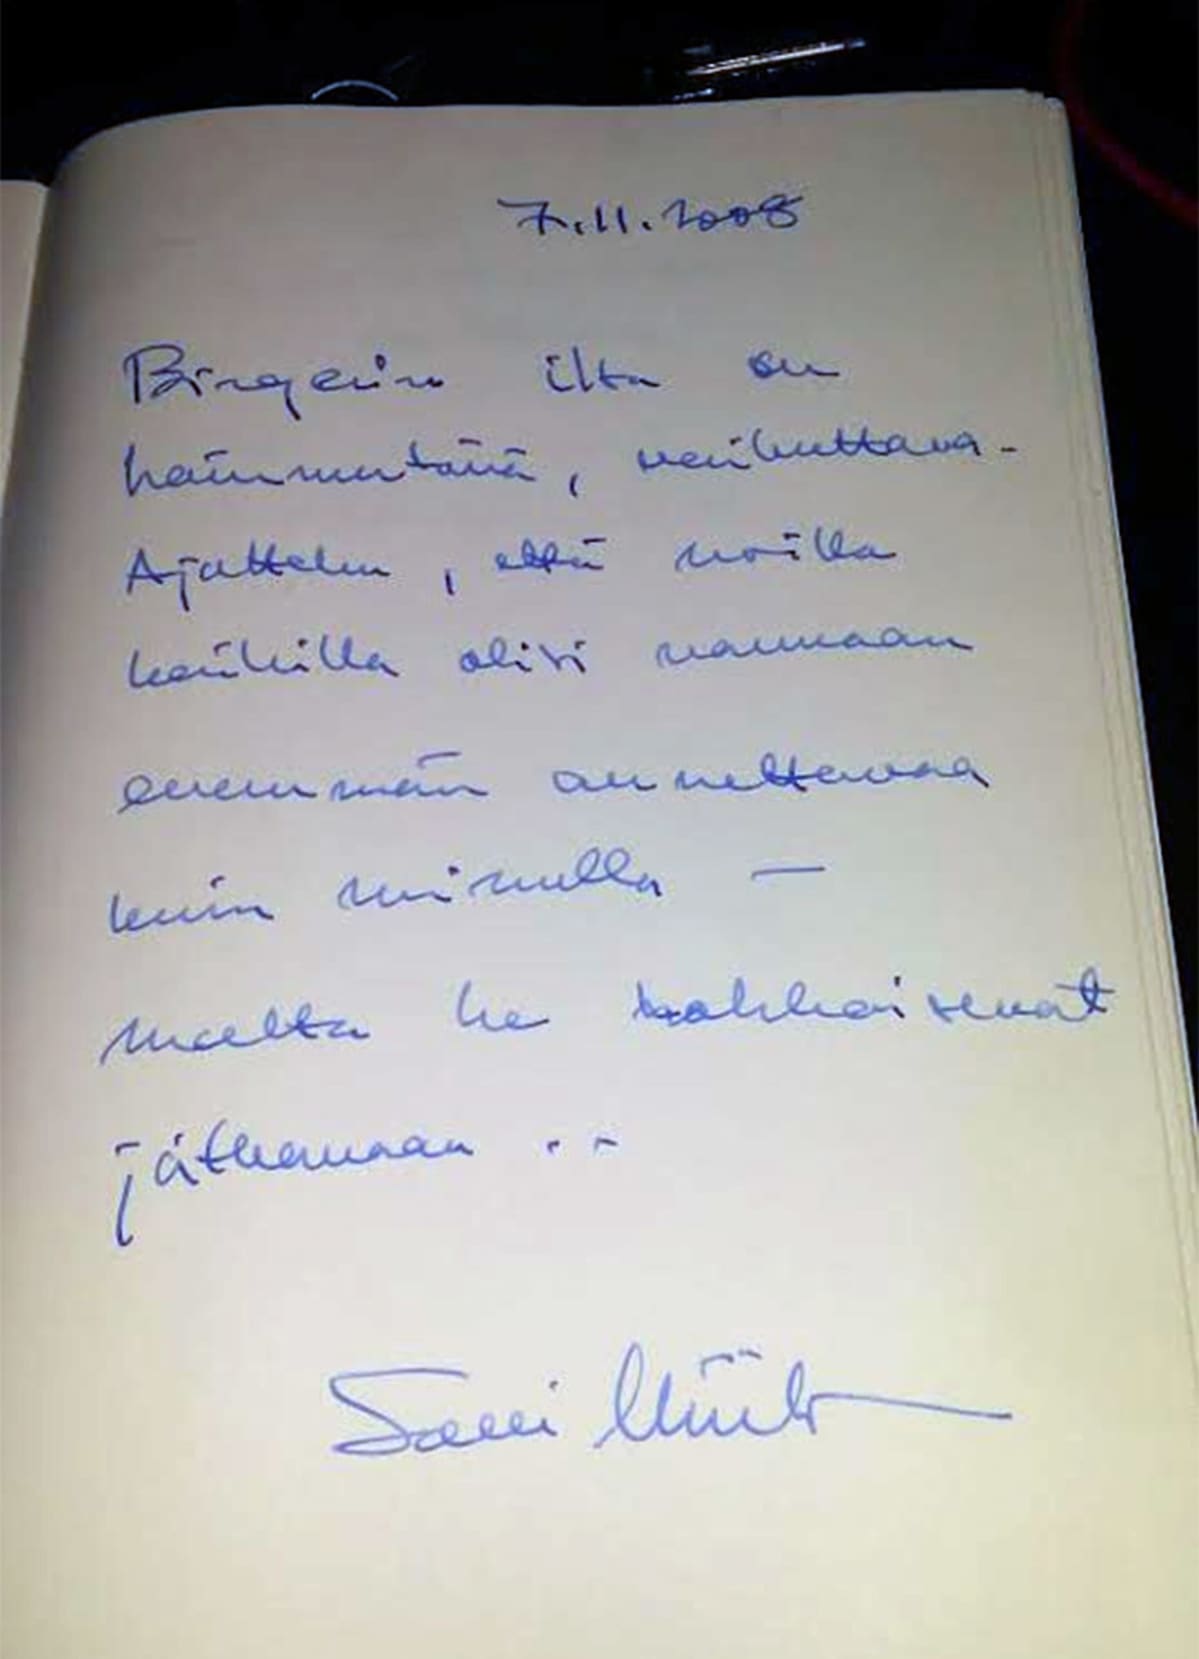 7.11.2008
Birgerin ilta on
hämmentävä, vaikuttava -
Ajattelen, että noilla
kaikilla olisi varmaan
enemmän annettavaa
kuin minulla –
mutta he rohkaisevat
jatkamaan ..